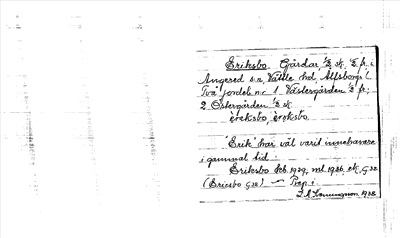 Eriksbo. Gårdar, ½ sk. ½ fr. i
Angered sn, Vättle hd, Älfsborgs l.
Två jordeb. nr: 1 Västergården ½ fr;
2 Östergården ½ sk.
èreksbo, èreksbo.
'Erik' har väl varit innehavare
i gammal tid.
Eriksbo feb. 1929, ml 1926, ek. G 22
(Ericsbo G 22) — Prep. i
1928